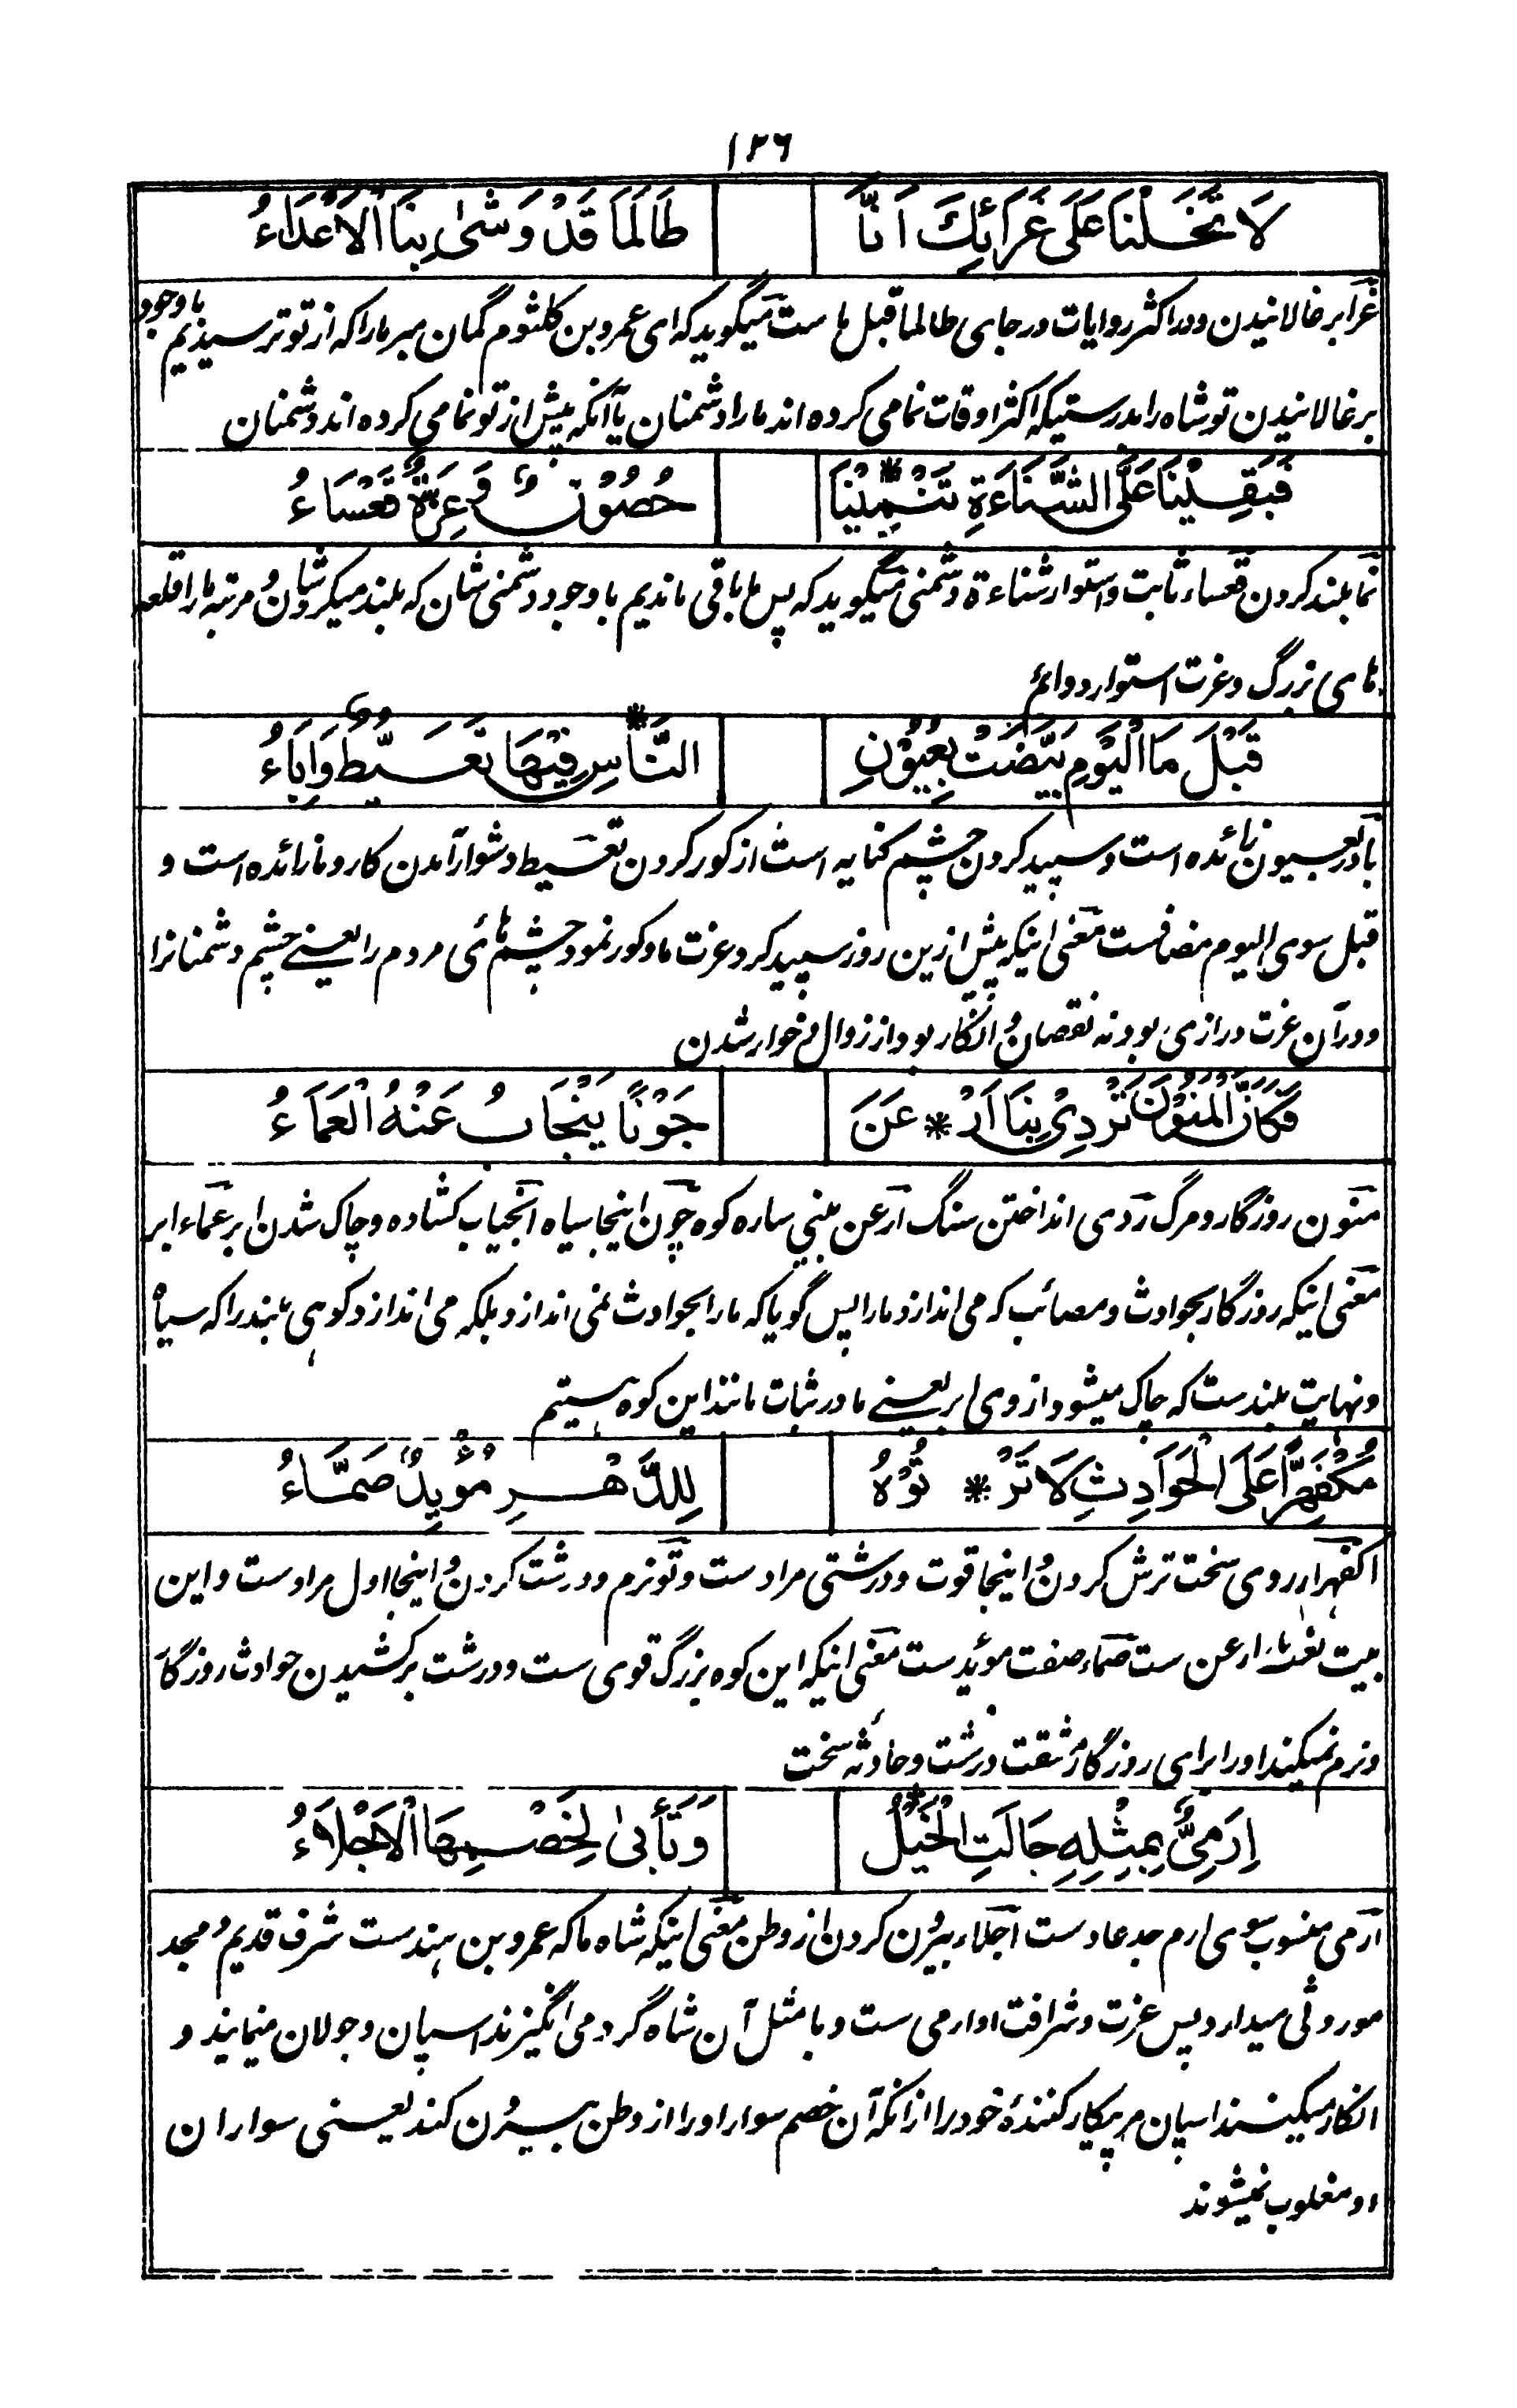 ١٢٦
لَا تَخَلْنَا عَلَى غَرَائِكَ اَنَّا طَالَمَا قَدْ وَشٰى بِنَا الْاَعْدَاءُ
غرا برغالانیدن و در اکثر روایات در جای طالما قبل ما ست میگوید که ای عمرو بن کلثوم گمان مبر مارا که از تو ترسیدیم باوجود
برغالانیدن تو شاه را بدرستیکه اکثر اوقات نمامی کرده اند مارا دشمنان یا آنکه پیش از تو نمامی کرده اند دشمنان
فَبَقِيْنَا عَلَى الشَّنَاءَةِ تَنْمِيْنَا * حُصُوْنٌ وَعِزَّةٌ قَعْسَاءُ
نما بلند کردن قعساء ثابت و استوار شناءة دشمنی میگوید که پس ما باقی ماندیم باوجود دشمنی شان که بلند میکرد شان و مرتبه مارا قلعه
های بزرگ و عزت استوار و دائم
قَبْلَ مَا الْيَوْمِ بَيَّضَتْ بِعُيُوْنِ * النَّاسِ فِيْهَا تَعَيُّطٌ وَاِبَاءُ
با در بعیون زائده است و سپید کردن چشم کنایه است از کور کردن تعیط دشوار آمدن کار و ما زائده است و
قبل سوی الیوم مضافست معنی اینکه پیش ازین روز سپید کرد عزت ما و کور نمود چشم های مردم را یعنے چشم دشمنانرا
و در آن عزت درازی بود نه نقصان و انکار بود از زوال و خوار شدن
فَكَاَنَّ الْمَنُوْنَ تَرْدِىْ بِنَا اَرْ * عَنَ جَوْنًا يَنْجَابُ عَنْهُ الْعَمَاءُ
منون روزگار و مرگ ردی انداختن سنگ ارعن بینی ساره کوه جون اینجا سیاه انجیاب کشاده و چاک شدن ابر عماء ابر
معنی اینکه روزگار بحوادث و مصائب که می اندازد مارا پس گویا که مارا بحوادث نمی اندازد بلکه می اندازد کوهی بلند را که سیاه
و نهایت بلند ست که چاک میشود از وی ابر یعنے ما در ثبات مانند این کوه هستیم
مُكْفَهِرًّا عَلَى الْحَوَادِثِ لَا تَرْ * تُوْهُ لِلدَّهْرِ مُؤْيِدٌ صَمَّاءُ
اکفهرار روی سخت ترش کردن و اینجا قوت و درشتی مراد ست و رتو نرم و درشت کردن و اینجا اول مراد ست و این
بیت نعت ارعن ست صماء صفت موئید ست معنی اینکه این کوه بزرگ قوی ست و درشت بر کشیدن حوادث روزگار
و نرم نمیکند او را برای روزگار مشقت درشت و حادثه سخت
اِرَمِىٌّ بِمِثْلِهِ جَالَتِ الْخَيْلُ * وَتَأْبٰى لِخَصْمِهَا الْاَجْلَاءُ
ارمی منسوب سوی ارم جد عاد ست اجلاء بیرون کردن از وطن معنی اینکه شاه ما که عمرو بن هند ست شرف قدیم و مجد
موروثی میدارد پس عزت و شرافت او ارمی ست و با مثل آن شاه گرد می انگیزند اسپان و جولان مینمایند و
انکار میکنند اسپان مر پیکار کنندۀ خود را از انکه آن خصم سوار او را از وطن بیرون کند یعنی سواران
او مغلوب نمیشوند